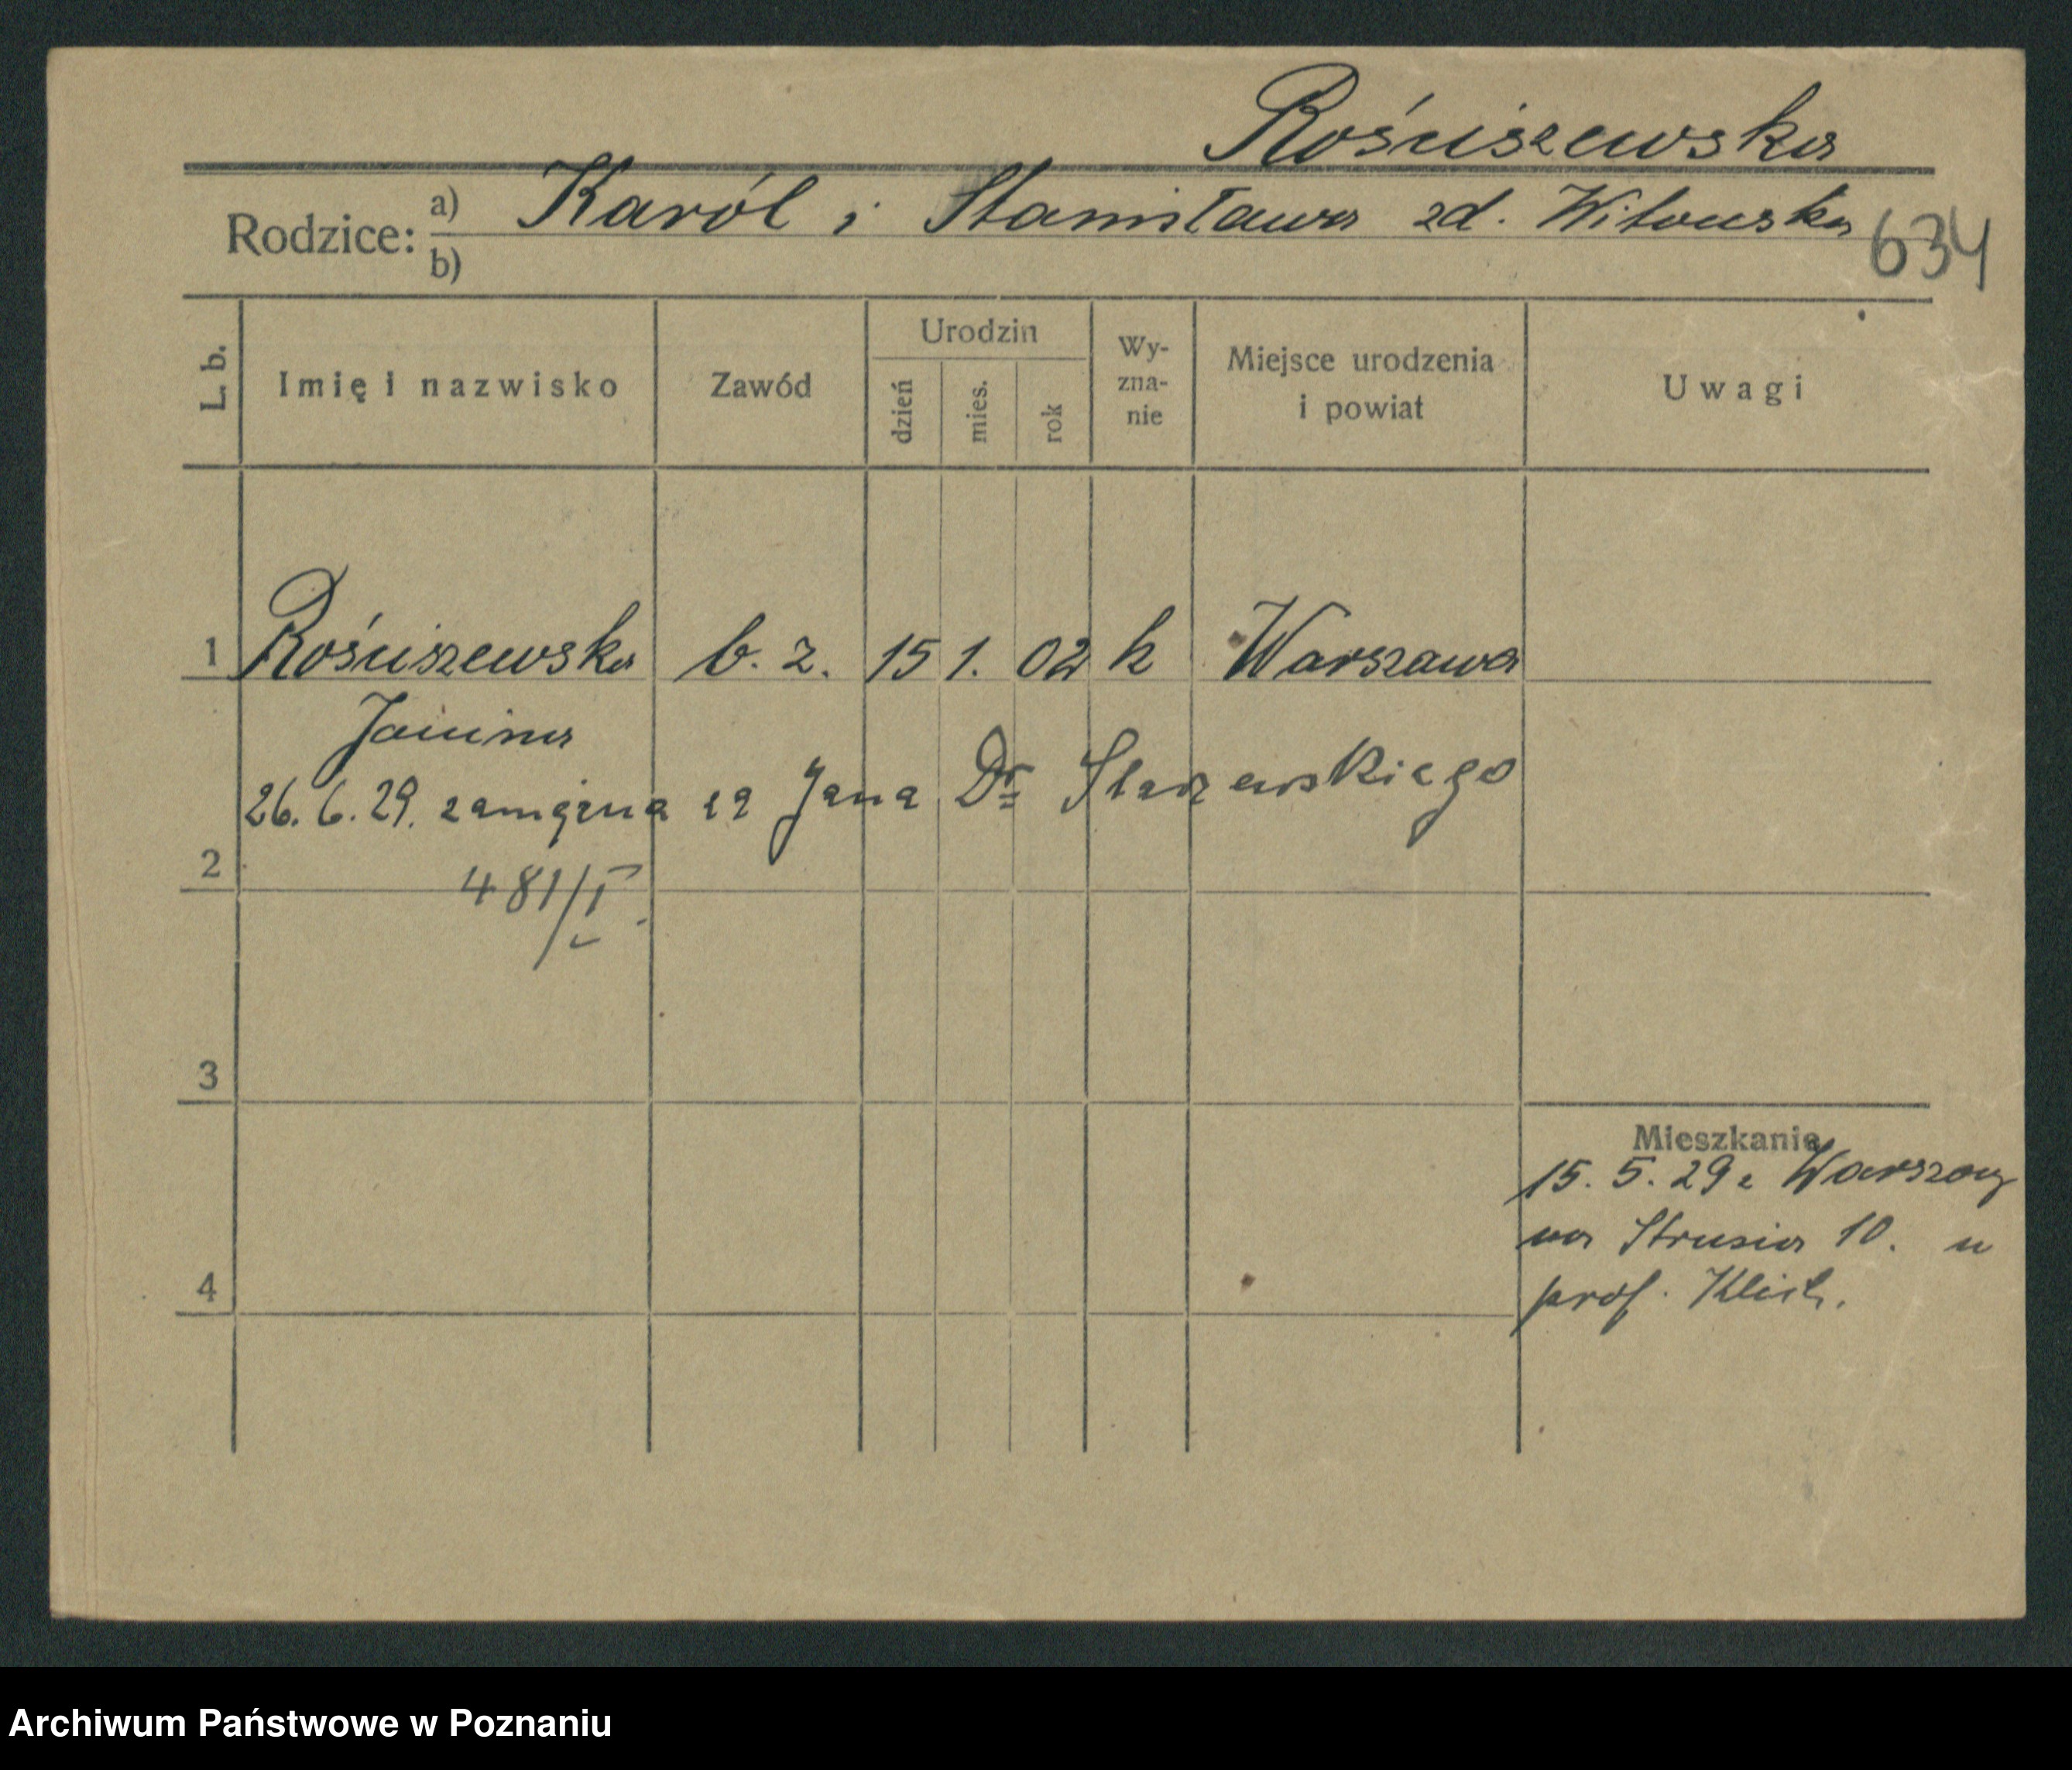 Rościszewska
Rodzice: a) Karól i Stanisława zd. Witowska
b)
634
L. b. Imię i nazwisko Zawód Urodzin dzień mies. rok Wy-zna-nie Miejsce urodzenia i powiat Uwagi
1 Rościszewska b. z. 15 1. 02 k Warszawa
Janina
26. 6. 29. zamężna za Jana Dr Starzewskiego
2
481/I
3
Mieszkanie
15. 5. 29 z Warszawy
na Strusia 10. u
4
prof.
Archiwum Państwowe w Poznaniu